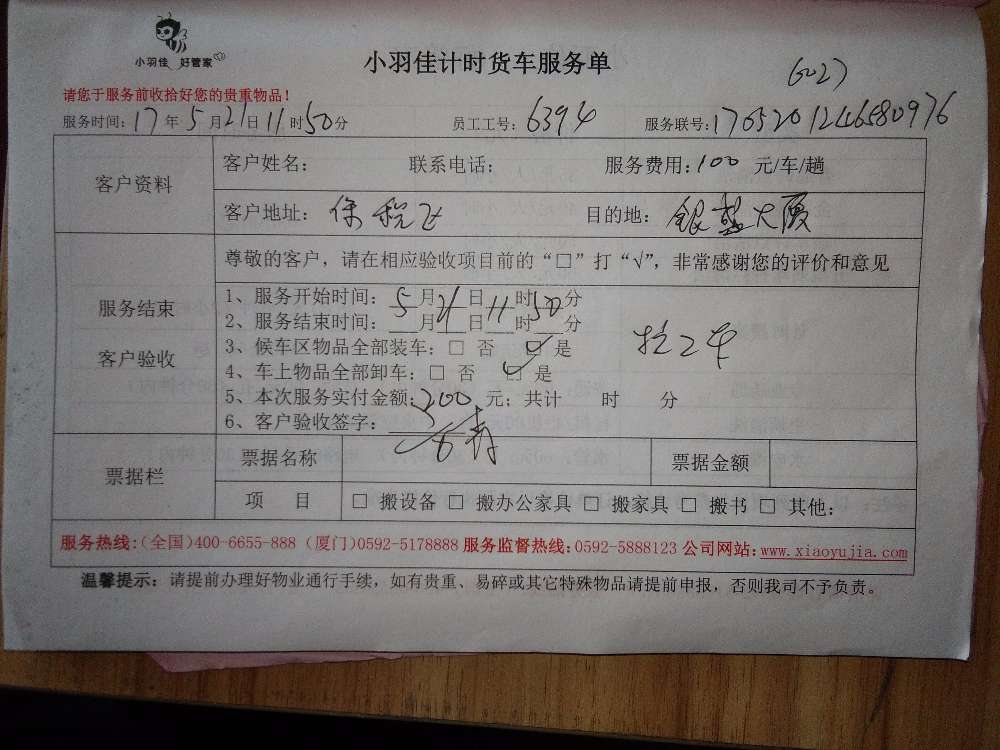 小羽佳 好管家
小羽佳计时货车服务单
6027
请您于服务前收拾好您的贵重物品！
服务时间：17年5月21日11时50分 员工工号：6394 服务联号：1705201246580976
客户资料
客户姓名： 联系电话： 服务费用：100 元/车/趟
客户地址：保税区 目的地：银盛大厦
服务结束
客户验收
尊敬的客户，请在相应验收项目前的“□”打“√”，非常感谢您的评价和意见
1、服务开始时间：5月21日11时50分
2、服务结束时间：___月___日___时___分
3、候车区物品全部装车：□ 否 ☑ 是
4、车上物品全部卸车：□ 否 ☑ 是
5、本次服务实付金额：200 元；共计 时 分
6、客户验收签字：
票据栏
票据名称 票据金额
项 目 □ 搬设备 □ 搬办公家具 □ 搬家具 □ 搬书 □ 其他：
服务热线：(全国)400-6655-888 (厦门)0592-5178888 服务监督热线：0592-5888123 公司网站：www.xiaoyujia.com
温馨提示：请提前办理好物业通行手续，如有贵重、易碎或其它特殊物品请提前申报，否则我司不予负责。